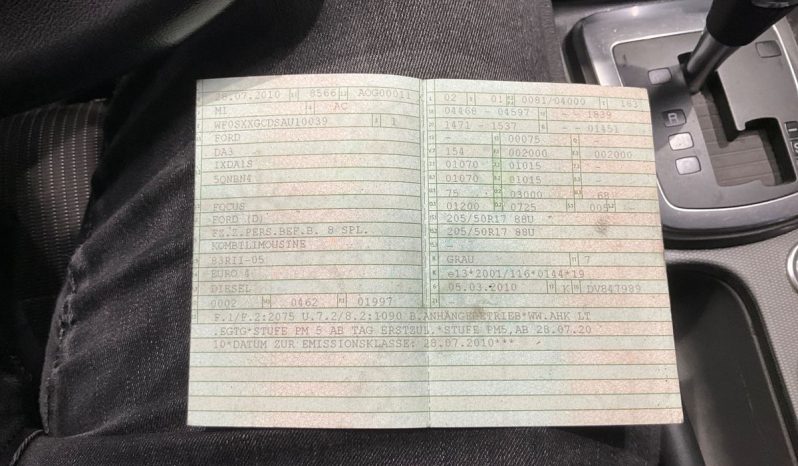 28.07.2010 8566 AOG00011
M1 AC
WF0SXXGCDSAU10039 1
FORD
DA3
IXDA1S
5QNBN4
FOCUS
FORD (D)
FZ.Z.PERS.BEF.B. 8 SPL.
KOMBILIMOUSINE
83RII-05
EURO 4
DIESEL
0002 0462 01997
02 01 0081/04000 183
04468 - 04597 - - 1839
1471 - 1537 - - 01451
- 00075 -
154 002000 002000
01070 01015 -
01070 01015 -
75 03000 68
01200 0725 005
205/50R17 88U
205/50R17 88U
GRAU 7
e13*2001/116*0144*19
05.03.2010 K DV847989
-
F.1/F.2:2075 U.7.2/8.2:1090 B.ANHÄNGEBETRIEB*WW.AHK LT
.EGTG*STUFE PM 5 AB TAG ERSTZUL.*STUFE PM5,AB 28.07.20
10*DATUM ZUR EMISSIONSKLASSE: 28.07.2010***
R